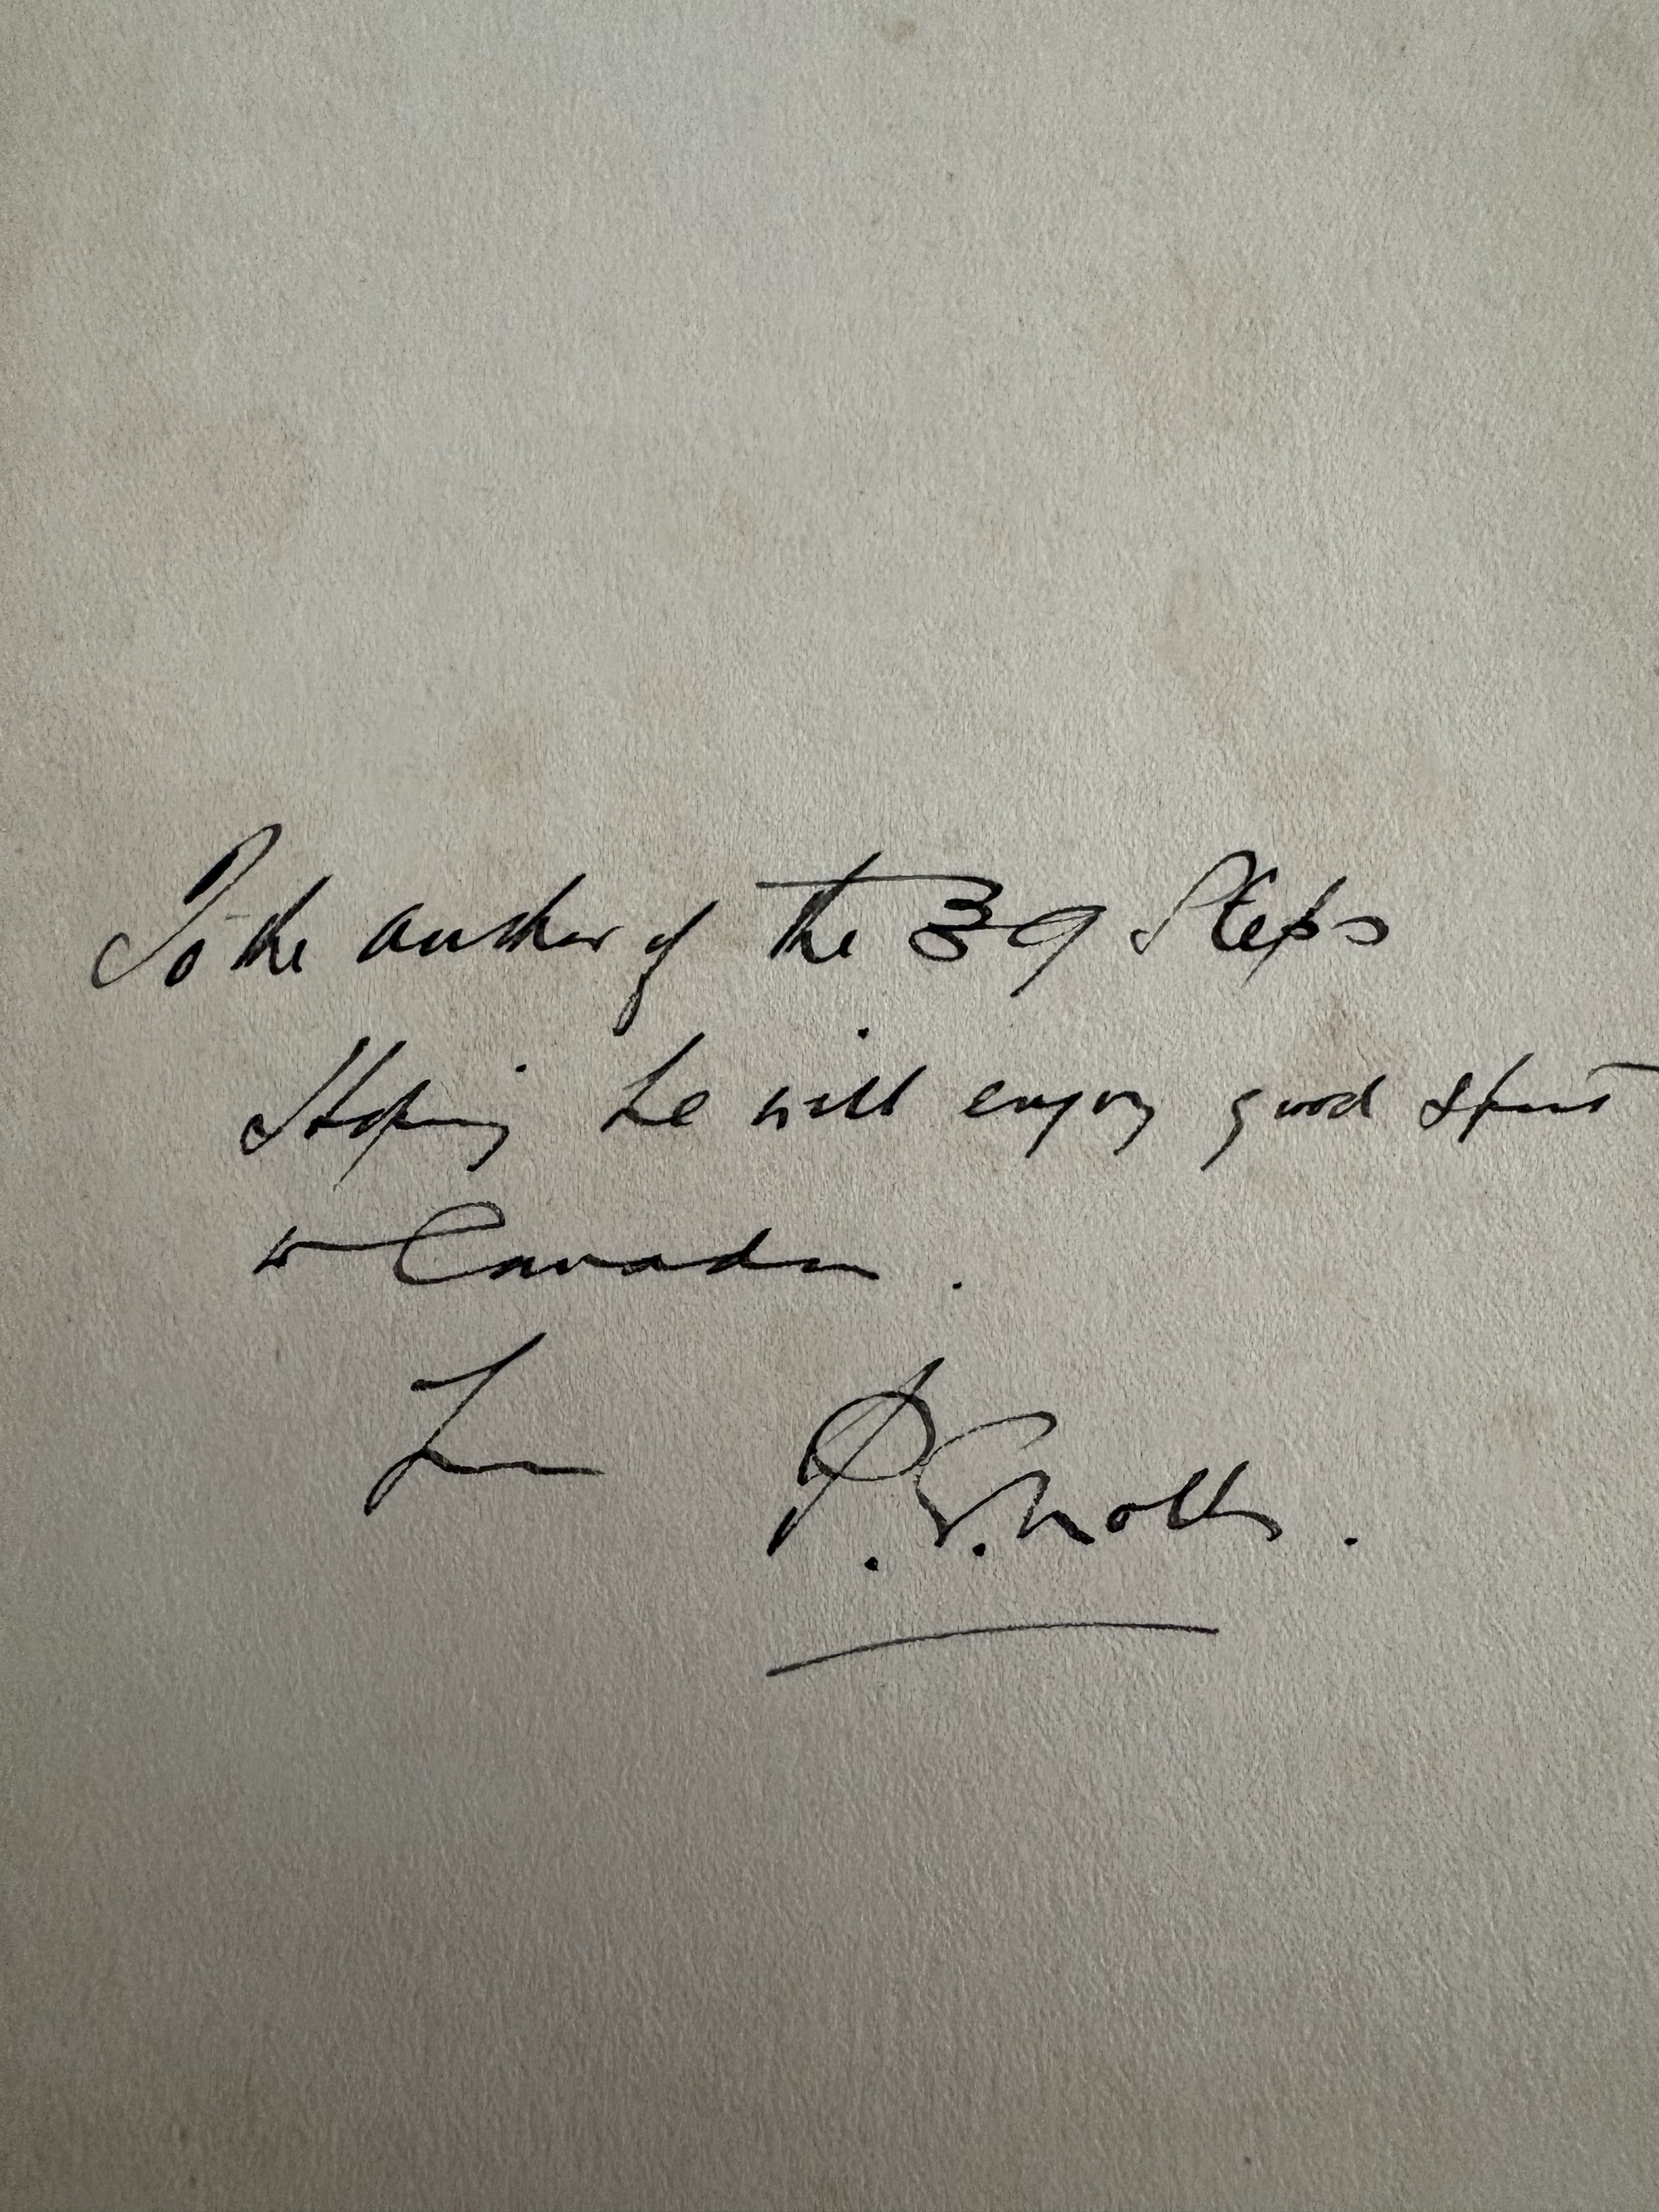 To the author of the 39 Steps
Hoping he will enjoy good sport
in Canada.
From P. G.